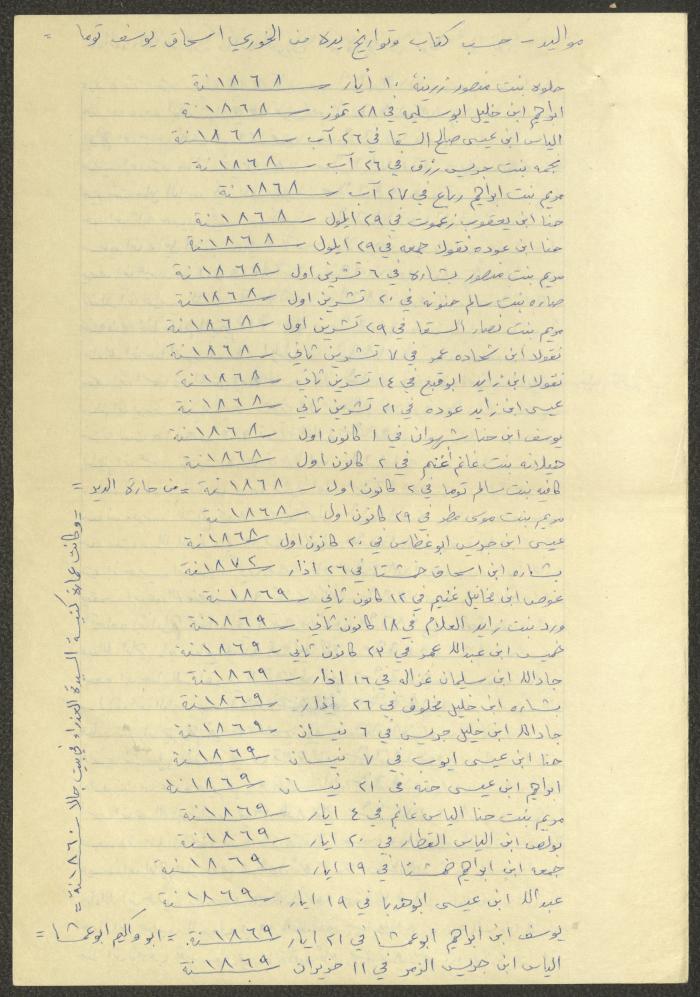 مواليد – حسب كتاب وتواريخ يده من الخوري اسحاق يوسف توما =
حلوه بنت منصور زرينة ١٠ أيار سنة ١٨٦٨
ابراهيم ابن خليل ابو سليمه في ٢٨ تموز سنة ١٨٦٨
الياس ابن عيسى صالح السقا في ٢٦ آب سنة ١٨٦٨
نجمه بنت جريس رزق في ٢٦ آب سنة ١٨٦٨
مريم بنت ابراهيم رباع في ٢٧ آب سنة ١٨٦٨
حنا ابن يعقوب زعموت في ٢٩ ايلول سنة ١٨٦٨
حنا ابن عوده نقولا جمعه في ٢٩ ايلول سنة ١٨٦٨
مريم بنت منصور بشاره في ٦ تشرين اول سنة ١٨٦٨
صاره بنت سالم حنونه في ٢٠ تشرين اول سنة ١٨٦٨
مريم بنت نصار السقا في ٢٩ تشرين اول سنة ١٨٦٨
نقولا ابن شحاده عمرو في ٧ تشرين ثاني سنة ١٨٦٨
نقولا ابن زايد ابو قبع في ١٤ تشرين ثاني سنة ١٨٦٨
عيسى ابن زايد عوده في ٢١ تشرين ثاني سنة ١٨٦٨
يوسف ابن حنا شهوان في ١ كانون اول سنة ١٨٦٨
هيلانه بنت غانم اغنيم في ٢ كانون اول سنة ١٨٦٨
كافيه بنت سالم توما في ٢ كانون اول سنة ١٨٦٨ = من حارة الدير =
مريم بنت موسى مطر في ٢٩ كانون اول سنة ١٨٦٨
عيسى ابن جريس ابو غطاس في ٢٠ كانون اول سنة ١٨٦٨
بشاره ابن اسحاق خمشتا في ٢٦ اذار سنة ١٨٧٢
غوص ابن مخائيل غنيم في ١٢ كانون ثاني سنة ١٨٦٩
ورد بنت زايد العلام في ١٨ كانون ثاني سنة ١٨٦٩
خميس ابن عبدالله عمرو في ٢٣ كانون ثاني سنة ١٨٦٩
جادالله ابن سليمان غزاله في ١٦ اذار سنة ١٨٦٩
بشاره ابن خليل مخلوف في ٢٦ اذار سنة ١٨٦٩
جادالله ابن خليل جريس في ٦ نيسان سنة ١٨٦٩
حنا ابن عيسى ايوب في ٧ نيسان سنة ١٨٦٩
ابراهيم ابن عيسى حنه في ٢١ نيسان سنة ١٨٦٩
مريم بنت حنا الياس غانم في ٤ ايار سنة ١٨٦٩
بولص ابن الياس القطار في ٢٠ ايار سنة ١٨٦٩
جمعه ابن ابراهيم خمشتا في ١٩ ايار سنة ١٨٦٩
عبدالله ابن عيسى ابو هدبا في ١٩ ايار سنة ١٨٦٩
يوسف ابن ابراهيم ابو عمشا في ٢١ ايار سنة ١٨٦٩ = ابو واكيم ابو عمشا =
الياس ابن جريس الزمر في ١١ حزيران سنة ١٨٦٩
= وكانت عمارة كنيسة السيدة العذراء في بيت جالا سنة ١٨٦٠ =